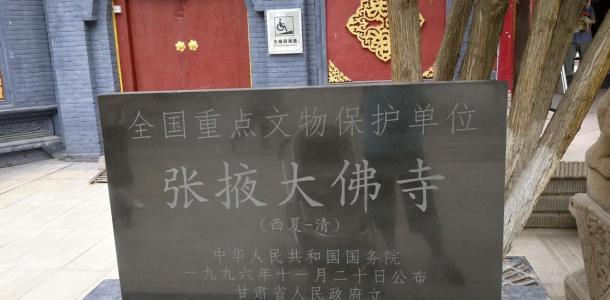 无障碍通道
全国重点文物保护单位
张掖大佛寺
（西夏-清）
中华人民共和国国务院
一九九六年十一月二十日公布
甘肃省人民政府立